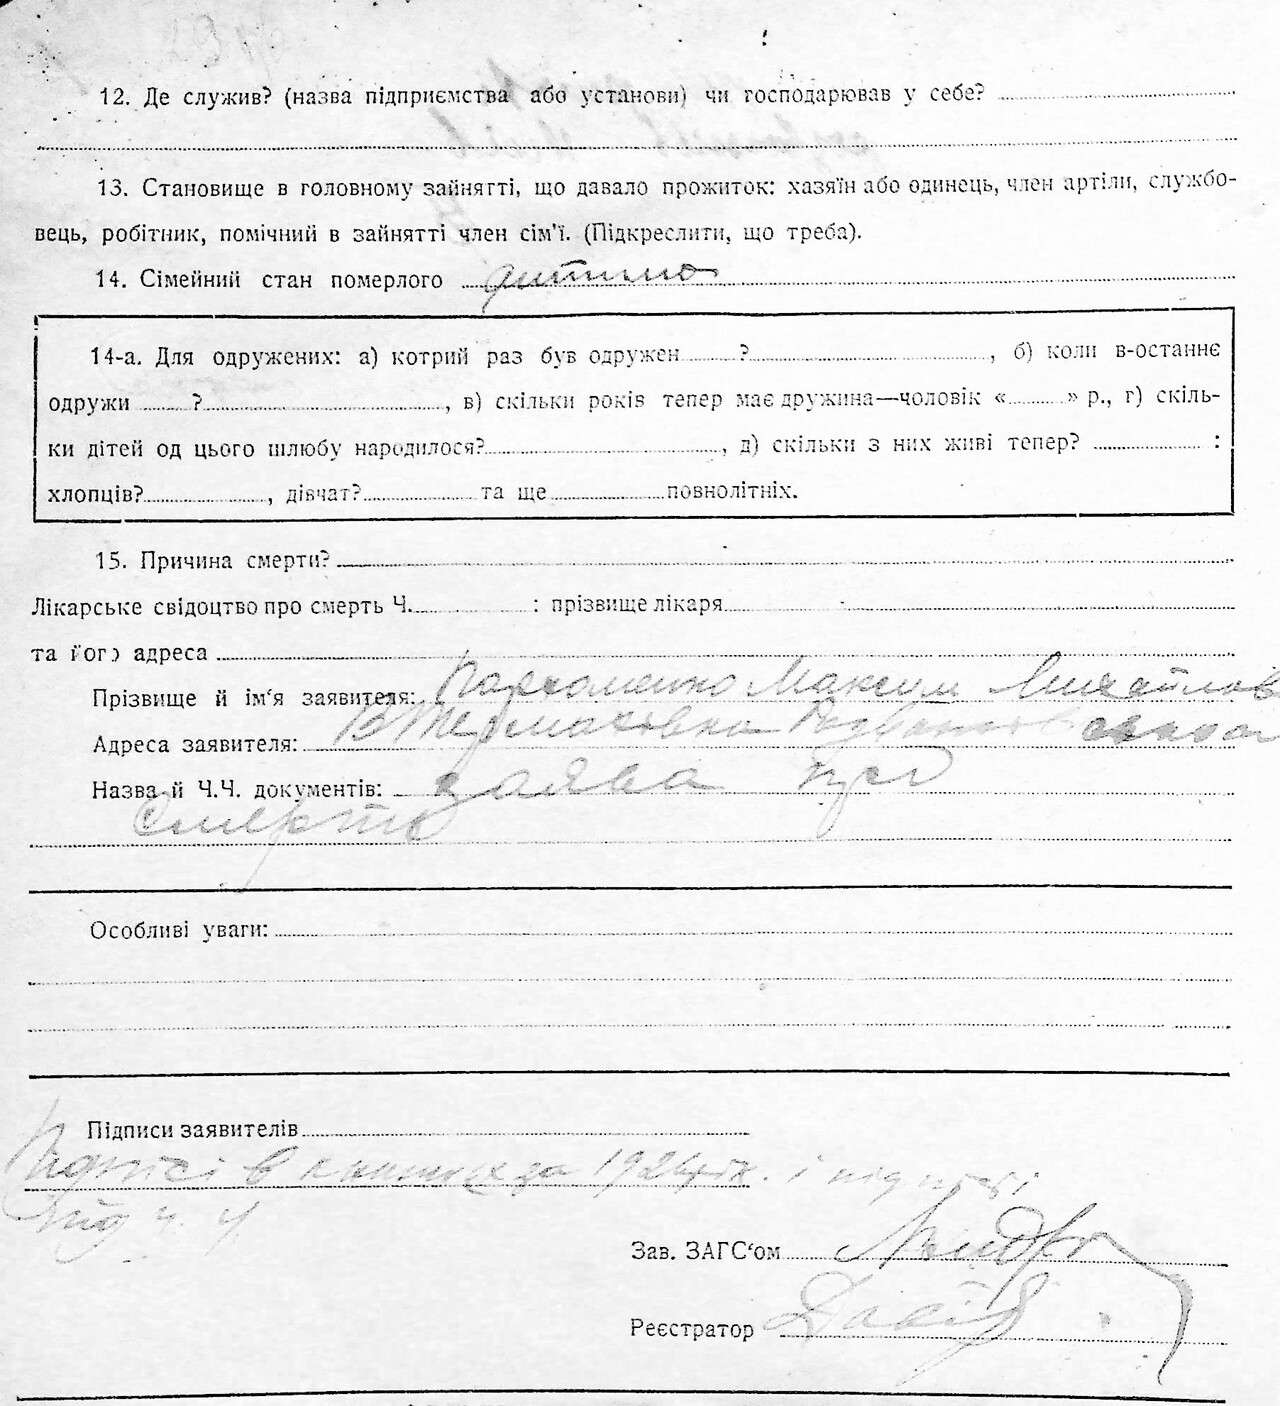 12. Де служив? (назва підприємства або установи) чи господарював у себе?
13. Становище в головному зайнятті, що давало прожиток: хазяїн або одинець, член артіли, службо-
вець, робітник, помічний в зайнятті член сім'ї. (Підкреслити, що треба).
14. Сімейний стан померлого дитина
14-а. Для одружених: а) котрий раз був одружен ?, б) коли в-останнє
одружи ?, в) скільки років тепер має дружина—чоловік « » р., г) скіль-
ки дітей од цього шлюбу народилося?, д) скільки з них живі тепер? :
хлопців?, дівчат? та ще повнолітніх.
15. Причина смерти?
Лікарське свідоцтво про смерть Ч. : прізвище лікаря
та його адреса
Прізвище й ім'я заявителя: Пархоменко Максим Михайлов
Адреса заявителя: В Термаховка
Назва й Ч.Ч. документів: заява про
смерть
Особливі уваги:
Підписи заявителів
Підписі в книжках за 1924 рік. і підписі
під ч. 4
Зав. ЗАГС'ом
Реєстратор